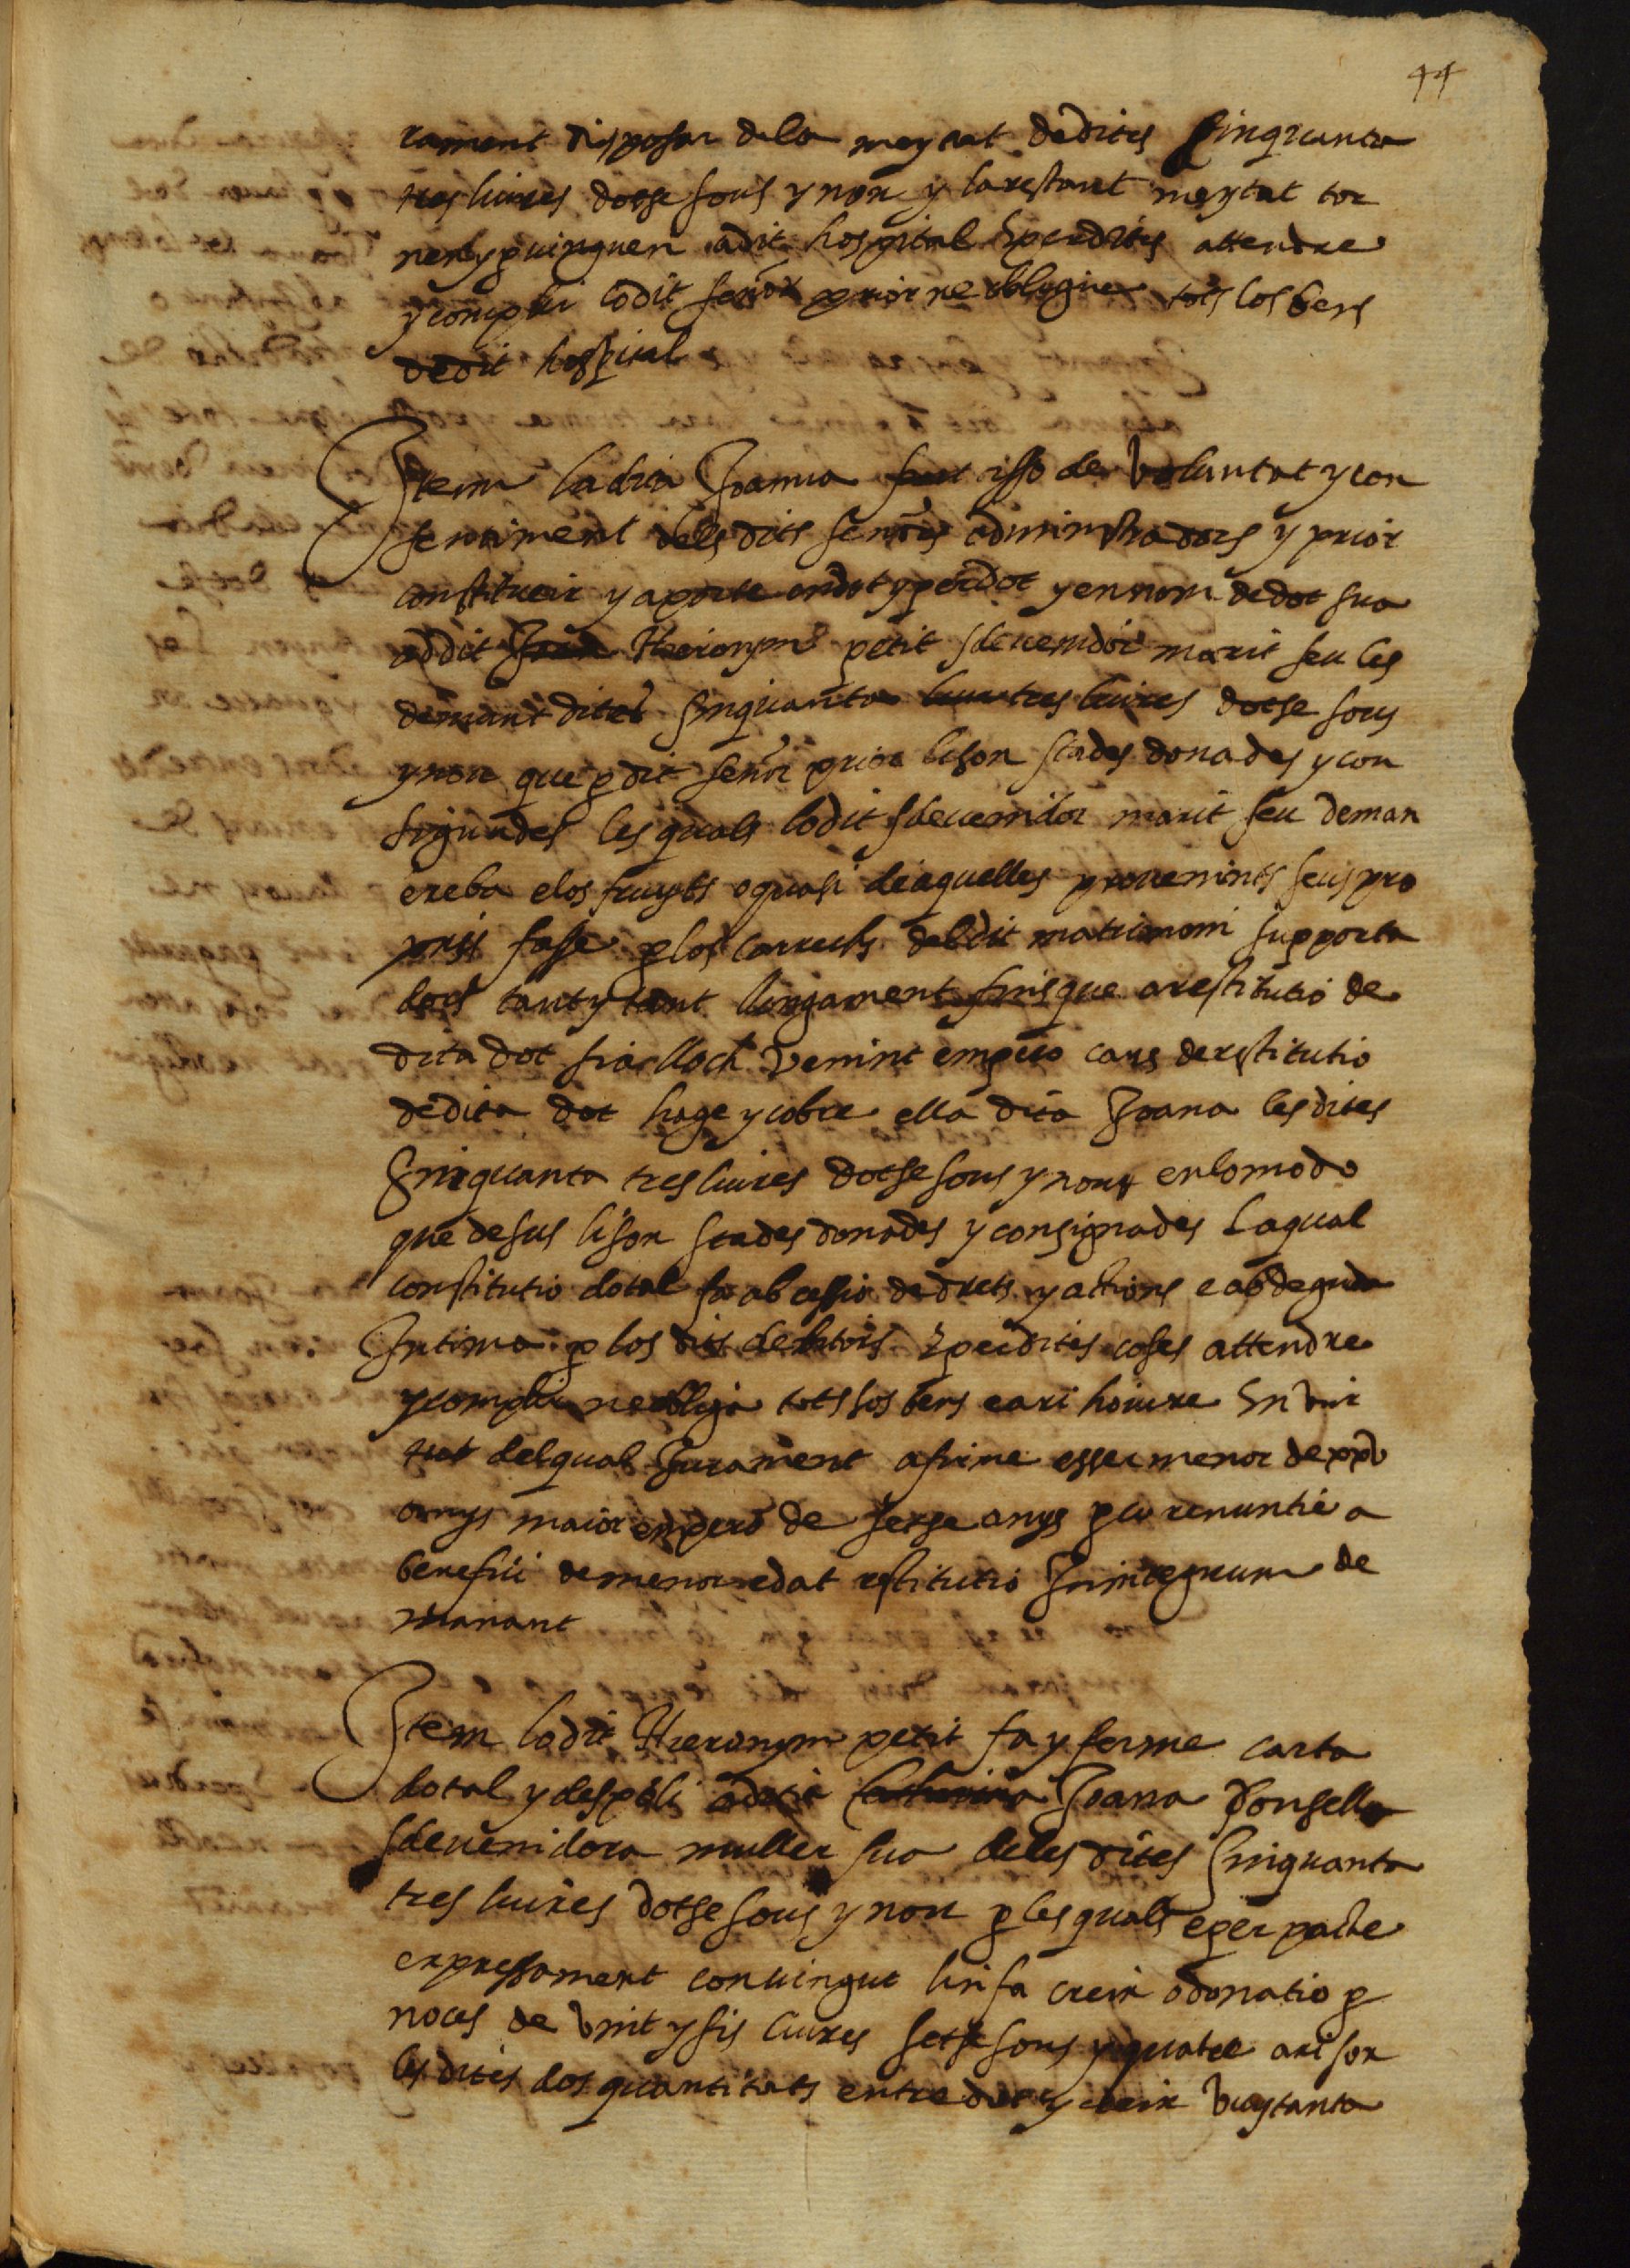 44
rament disposar dela meytat dedites sinquanta
tres liures dotse sous y nou y larestant meytat tor
nen y pvinguen adit hospital E perdites attendre
y complir lodit señor prior ne obligue tots los bens
dedit hospital
Item ladita Joanna fent asso de voluntat y con
sentiment dels dits señors administradors y prior
constitueix y aporte endot y perdot y en nom dedot sua
addit Hieronym petit sdevenidor marit seu les
demunt dites sinquanta tres liures dotse sous
y nou que p dit señor prior li son stades donades y con
signades les quals lodit sdevenidor marit seu deman
e reba e los fruyts o quasi de aquelles provenints seus pro
pris fasse p los carrechs del dit matrimoni supporta
dors tant y tant llongament finsque a restitutio de
dita dot sia lloch Venint empero cars de restitutio
dedita dot hage y cobre ella dita Joana les dites
Sinquanta tres liures dotse sous y nou en lo modo
que desus li son stades donades y consignades Laqual
constitutio dotal fa ab cessio de drets y actions e ab deguda
Intima p los dits debitors E perdites coses attendre
y complir ne obliga tots los bens e axi ho jure En vir
tut del qual Jurament afirme esser menor de xxv
anys maior empero de setse anys p ço renuntie a
benefici de menor edat restitutio Inintegrum de
manant
Item lodit Hieronym petit fa y ferme carta
dotal y despoli adita Joana Donsella
sdevenidora muller sua deles dites sinquanta
tres liures dotse sous y nou p les quals e per pacte
expressament convingut li fa creix o donatio p
noces de vint y sis liures setse sous y quatre axi son
les dites dos quantitats entre dot y creix vuytanta